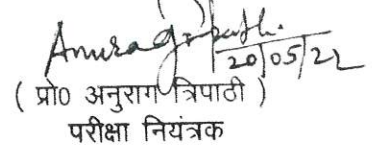 Anurag Tripathi.
20/05/22
( प्रो0 अनुराग त्रिपाठी )
परीक्षा नियंत्रक